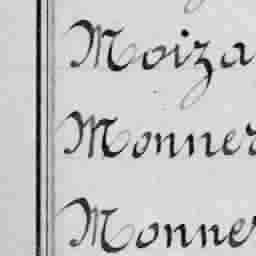 Moiza
Monner
Monner